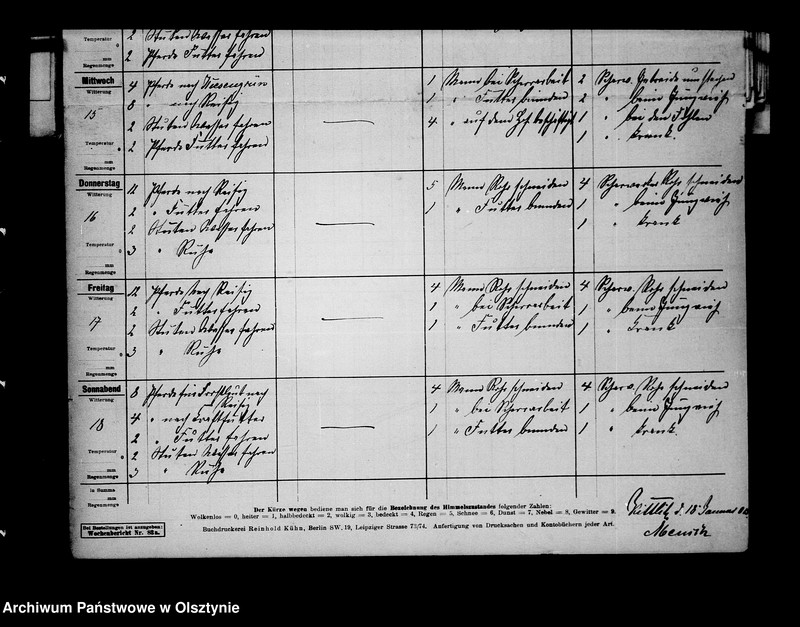 Temperatur 2 Stuten Wasser fahren
mm 2 Pferde Futter fahren
Regenmenge
Mittwoch 4 Pferde nach Wiesengrün 1 Mann bei Scherrarbeit 2 Scharw. Getreide
Witterung 8 " nach Reisig 1 " Futter 2 " beim Jungvieh
15 2 Stuten Wasser fahren — 4 " auf dem Hof beschäftigt 1 " bei den Fohlen
Temperatur 2 Pferde Futter fahren 1 " krank.
mm
Regenmenge
Donnerstag 12 Pferde nach Reisig 5 Mann Rohr schneiden 4 Scharwerker Rohr schneiden
Witterung 2 " Futter fahren 1 " Futter 1 " beim Jungvieh
16 2 Stuten Wasser fahren — 1 " krank
Temperatur 3 " Ruhe
mm
Regenmenge
Freitag 12 Pferde nach Reisig 4 Mann Rohr schneiden 4 Scharw. Rohr schneiden
Witterung 2 " Futter fahren 1 " bei Scherrarbeit 1 " beim Jungvieh
17 2 Stuten Wasser fahren — 1 " Futter 1 " krank
Temperatur 3 " Ruhe
mm
Regenmenge
Sonnabend 8 Pferde nach 4 Mann Rohr schneiden 4 Scharw. Rohr schneiden
Witterung Reisig 1 " bei Scherrarbeit 1 " beim Jungvieh
18 4 " nach Kraftfutter — 1 " Futter 1 " krank.
2 " Futter fahren
Temperatur 2 Stuten Wasser fahren
mm 3 " Ruhe
Regenmenge
in Summa
mm
Regenmenge
Der Kürze wegen bediene man sich für die Bezeichnung des Himmelszustandes folgender Zahlen:
Wolkenlos = 0, heiter = 1, halbbedeckt = 2, wolkig = 3, bedeckt = 4, Regen = 5, Schnee = 6, Dunst = 7, Nebel = 8, Gewitter = 9.
d. 18 Januar
Bei Bestellungen ist anzugeben:
Wochenbericht Nr. 83a.
Buchdruckerei Reinhold Kühn, Berlin SW. 19, Leipziger Strasse 73/74. Anfertigung von Drucksachen und Kontobüchern jeder Art.
Archiwum Państwowe w Olsztynie